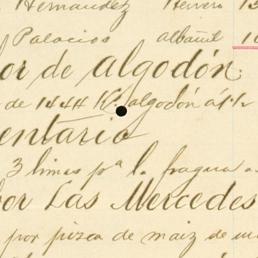 Hernandez Herrero 13
Palacios albañil 10
or de algodón
de 1444 K. algodón á 1½
entario
3 limas pª l. fragua a
or Las Mercedes
por pizca de maiz de